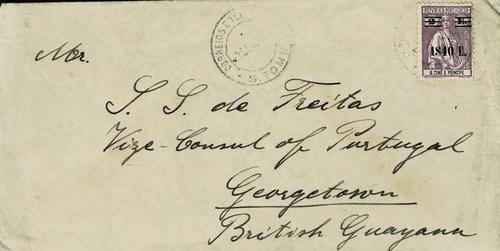 CORREIOS E TEL
S. TOMÉ
REPUBLICA PORTUGUESA
1$40 E.
S. TOMÉ E PRINCIPE
Mr.
S. S. de Freitas
Vize-Consul of Purtugal
Georgetown
British Guayana